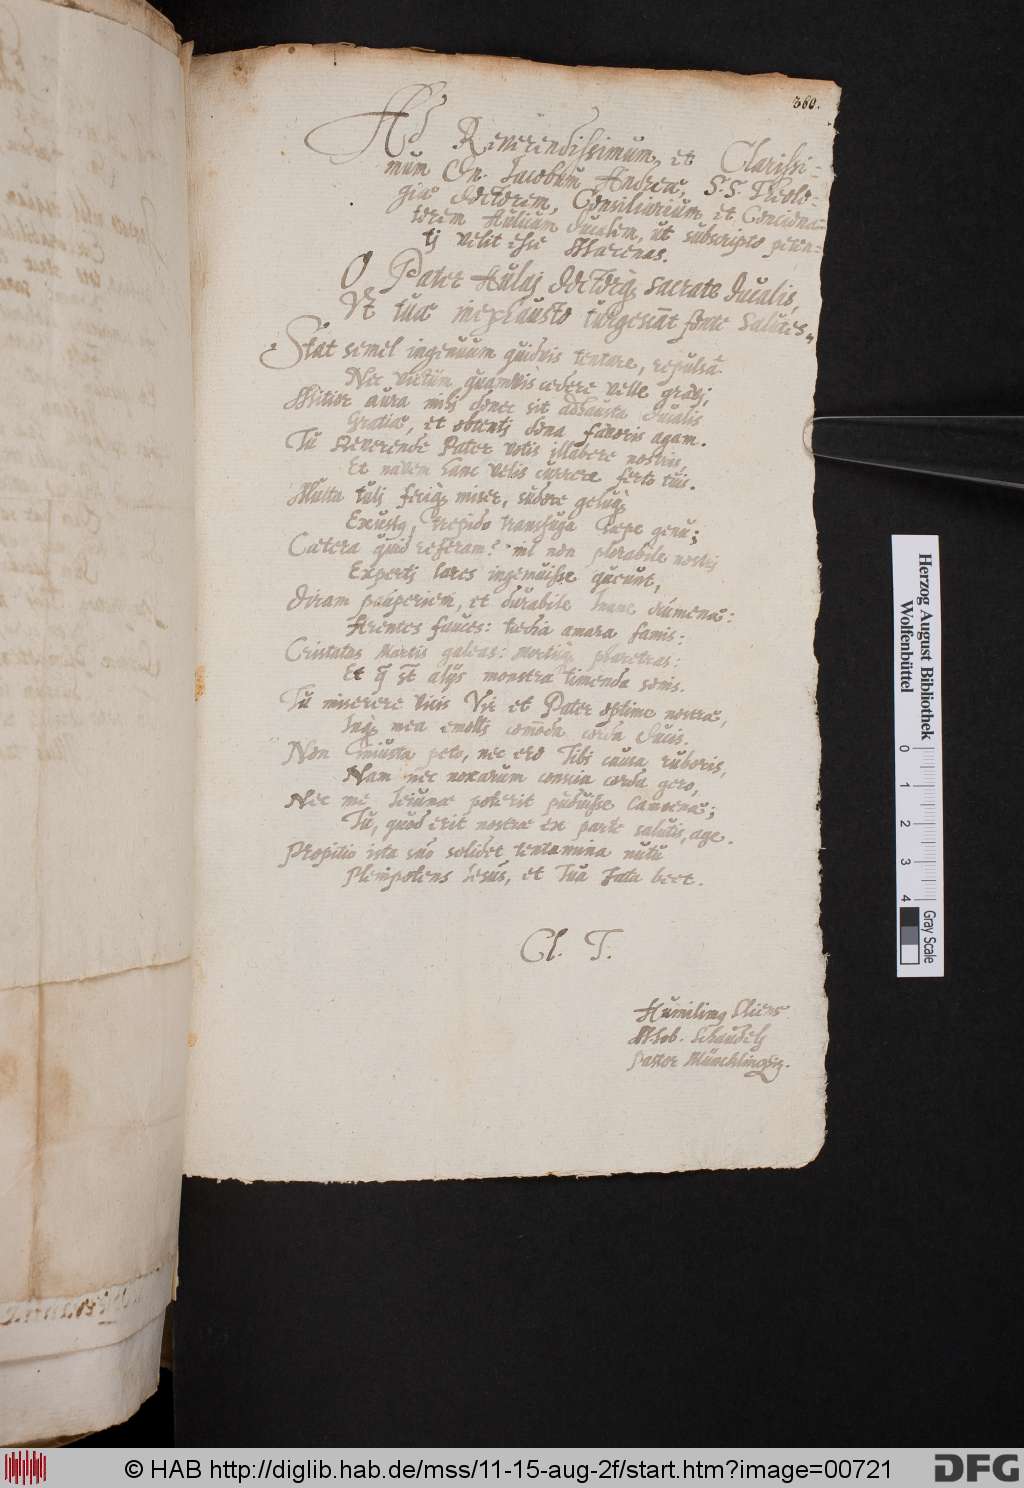 360.
Ad Reverendissimum, et Clarissi-
mum Dn. Iacobum Andreæ, S.S. Theolo-
giæ Doctorem, Consiliarium et Conciona-
torem Aulicum Ducalem, ut subscripto peten-
ti velit esse Mæcenas.
O Pater Aulæ Doctorq; sacrate Ducalis,
Ut tua inexhausto turgescāt fonte salutes,
Stat semel ingenuum quidvis tentare, repulsā
Nec victum quamvis cedere velle gradū;
Mitior aura mihi donec sit adhausta Ducalis
Gratiæ, et obtenti dona favoris agam.
Tu Reverende Pater votis illabere nostris,
Et navem hanc velis currere ferto tuis.
Multa tuli feciq; miser, sudore geluq;
Exustq, trepido transfuga sæpe genu;
Cætera quid referam? nil non plorabile nostri
Experti lares ingemuisse queunt,
Diram pauperiem, et durabile inane crumenæ:
Arentes fauces: tædia amara famis:
Cristatas Martis galeas: Mortisq; pharetras:
Et q̄ st̄ alijs monstra timenda sonis.
Tu miserere vicis Vir et Pater optime nostræ,
Inq; mea emolli com̄oda corda Ducis.
Non iniusta peto, nec ero Tibi causa ruboris,
Nam nec noxarum conscia corda gero,
Nec me Ieiunæ poterit puduisse Camoenæ;
Tu, quod erit nostræ ex parte salutis, age.
Propitio ista suo solidet tentamina nutu
Plenipotens Iesus, et Tua fata beet.
Cl. T.
Humilimq Cliens
M. Iob.
Pastor Münchlingēsis.
Herzog August Bibliothek
Wolfenbüttel
0 1 2 3 4
Gray Scale
© HAB http://diglib.hab.de/mss/11-15-aug-2f/start.htm?image=00721
DFG